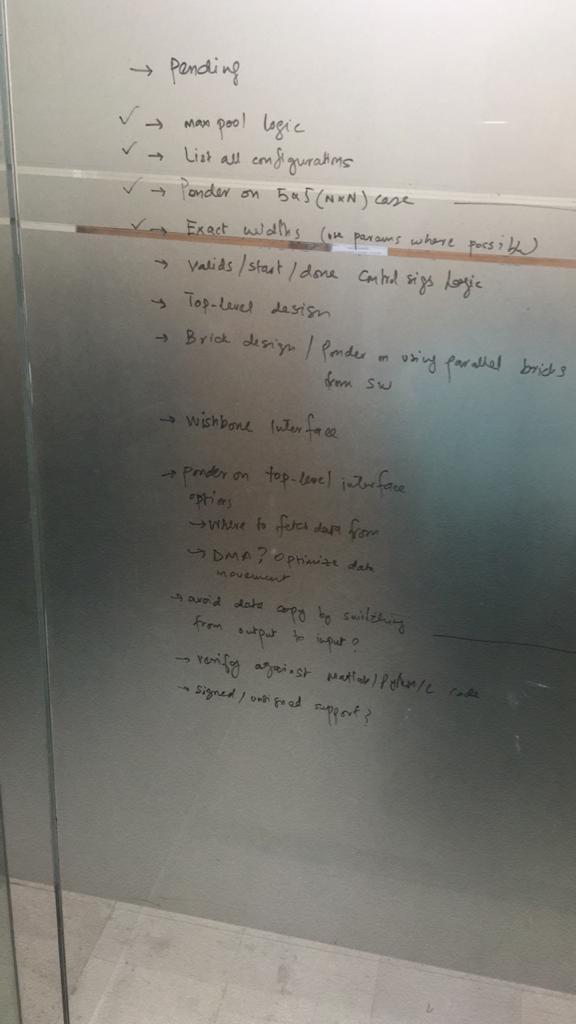 → Pending
✓ → max pool logic
✓ → List all configurations
✓ → Ponder on 5x5 (NxN) case
✓ → Exact widths (use params where possible)
→ valids/start/done control sigs logic
→ Top-level design
→ Brick design / Ponder on using parallel bricks
from SW
→ wishbone Interface
→ ponder on top-level interface
options
→ where to fetch data from
→ DMA? Optimize data
movement
→ avoid data copy by switching
from output to input?
→ verify against Matlab/Python/C code
→ signed/unsigned support?